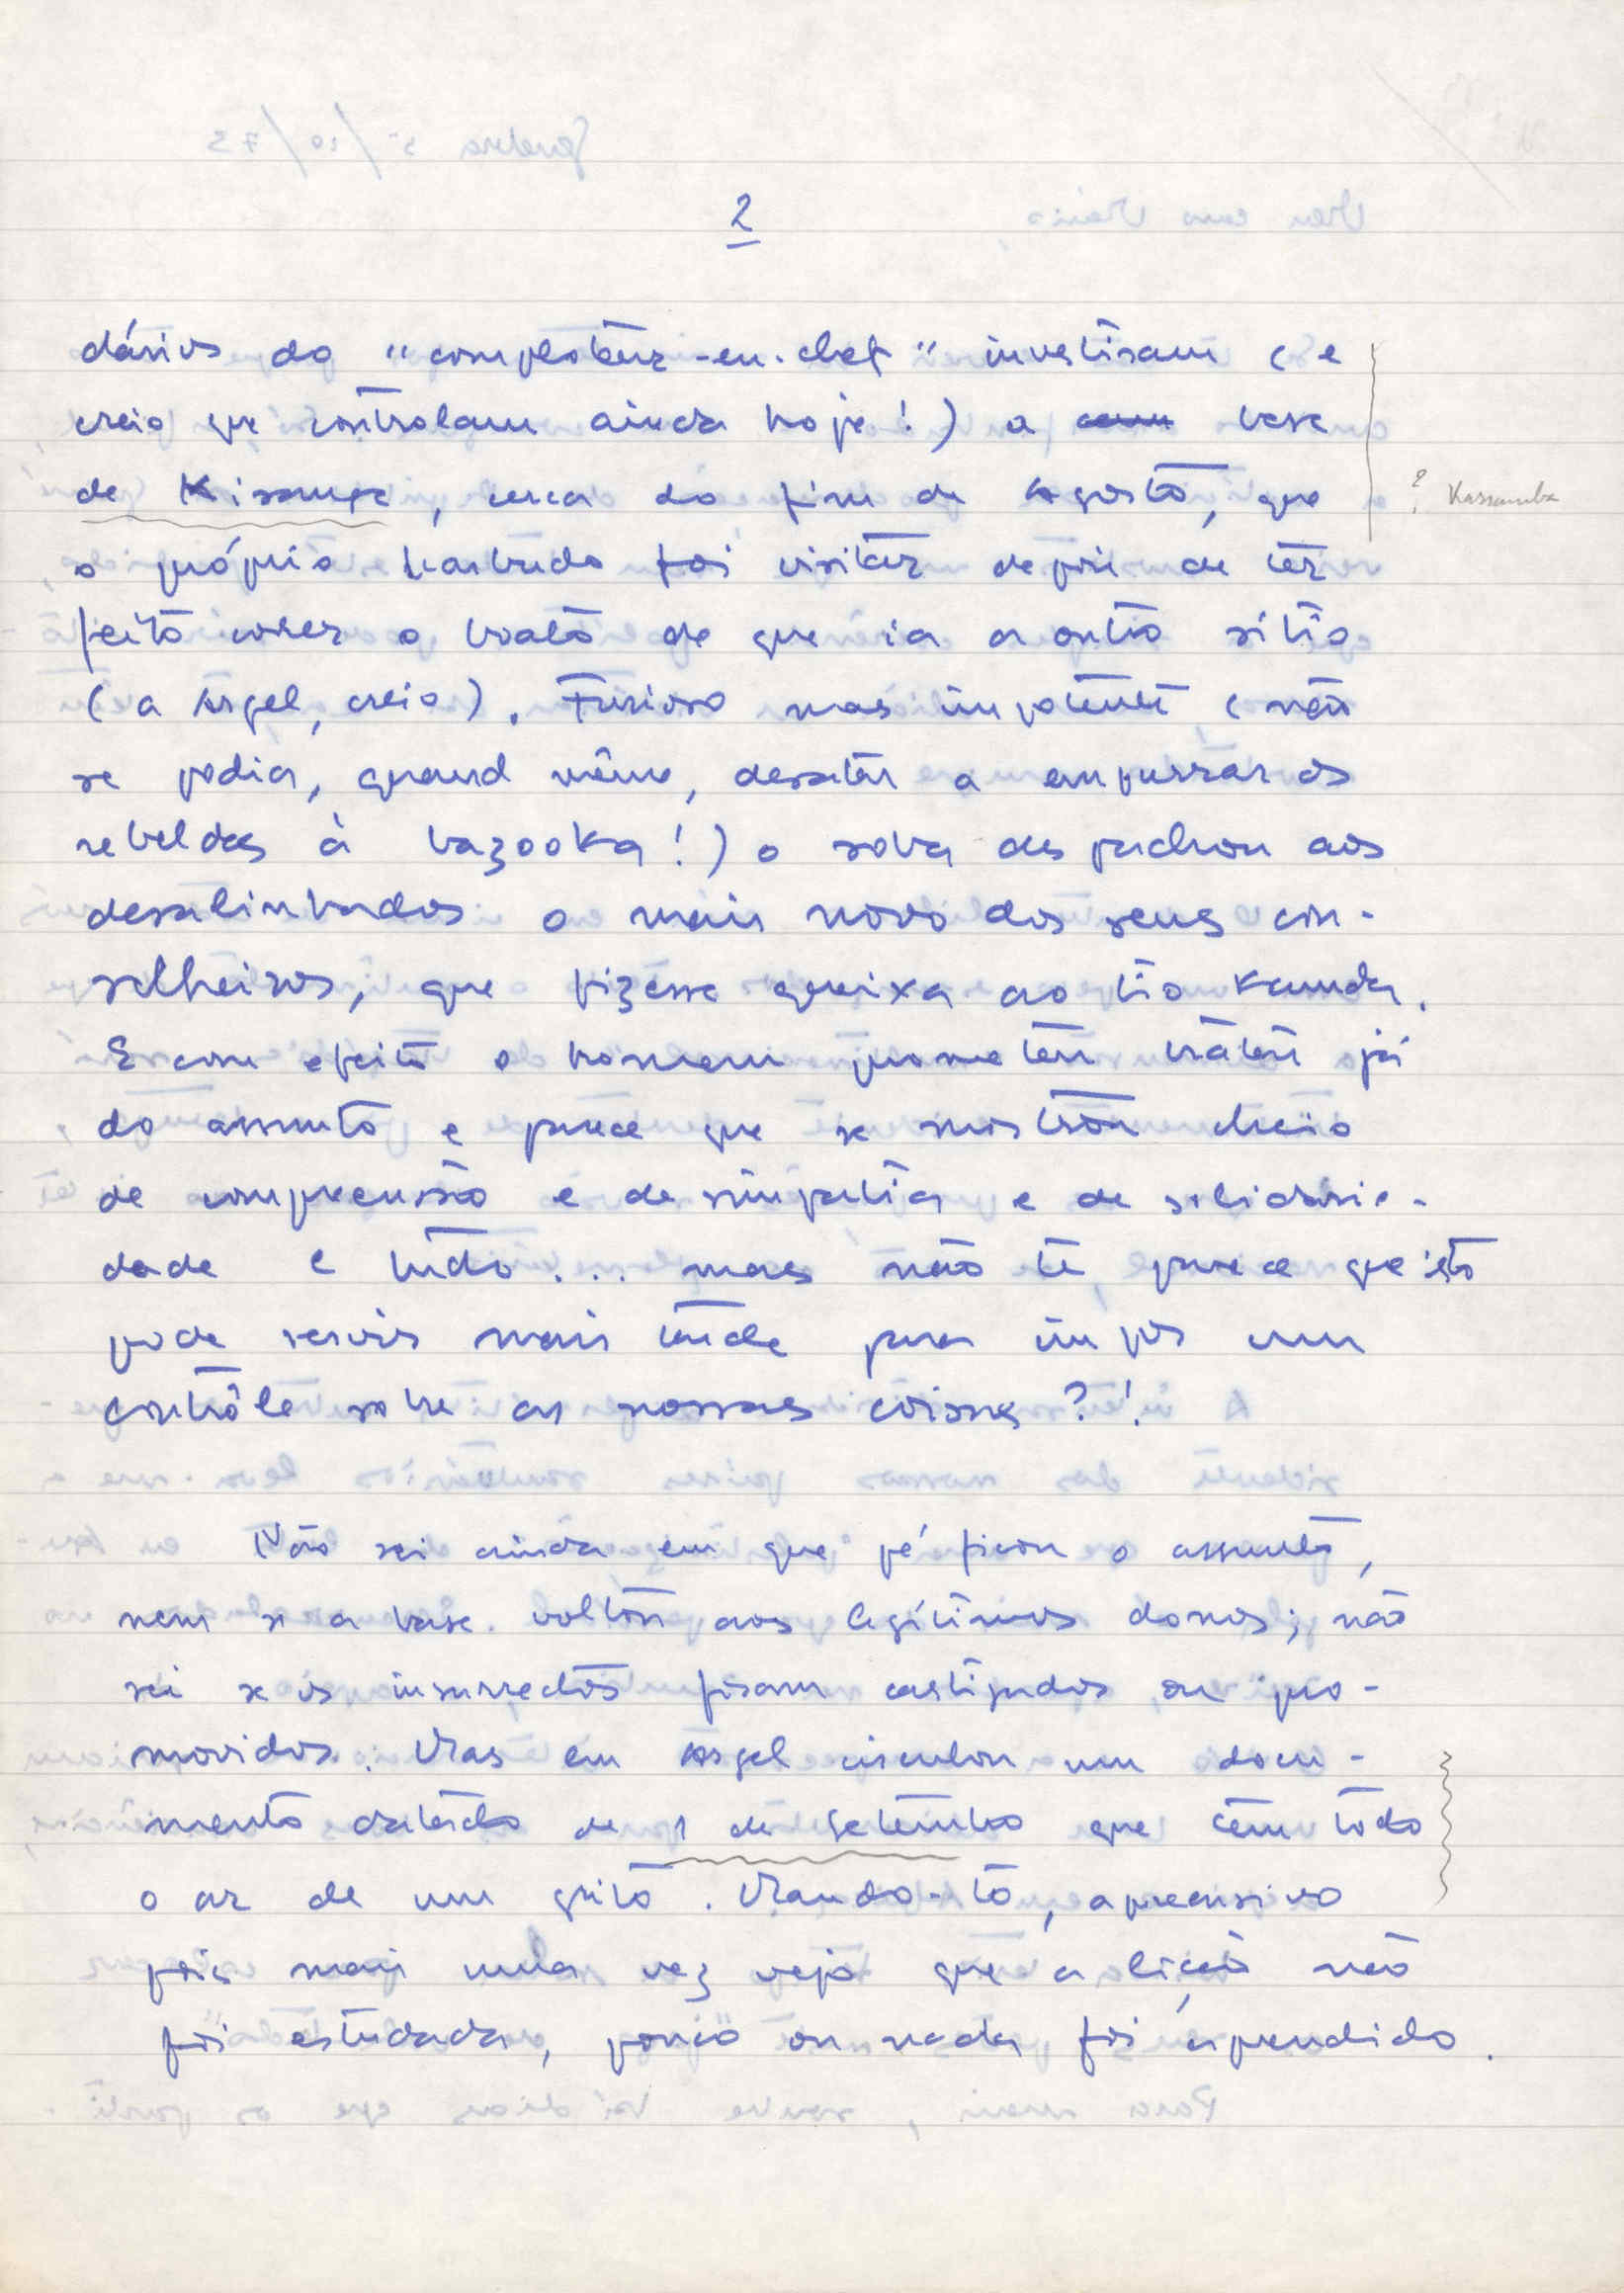 2
dários do "comploteur-en-chef" investiram (e
creio que controlam ainda hoje!) a base
de Kisamga, cerca do fim de Agosto, que
? Kassamba
o próprio barbudo foi visitar depois de ter
feito correr o boato de que ia a outro sítio
(a Argel, creio). Furioso mas impotente (não
se podia, quand même, desatar a empurrar os
rebeldes à bazooka!) o soba despachou aos
desalinhados o mais novo dos seus con-
selheiros, que fizesse queixa ao tio Kaunda.
E com efeito o homem prometeu tratar já
do assunto e parece que se mostrou cheio
de compreensão e de simpatia e de solidarie-
dade e tudo... mas não te parece que isto
pode servir mais tarde para impor um
contrôle sobre as nossas coisas?!
Não sei ainda em que pé ficou o assunto,
nem se a base voltou aos legítimos donos; não
sei se os insurrectos foram castigados ou pro-
movidos. Mas em Argel circulou um docu-
mento datado de 1 de Setembro que tem todo
o ar de um grito. Mando-to, apreensivo
pois mais uma vez vejo que a lição não
foi estudada, pouco ou nada foi aprendido.